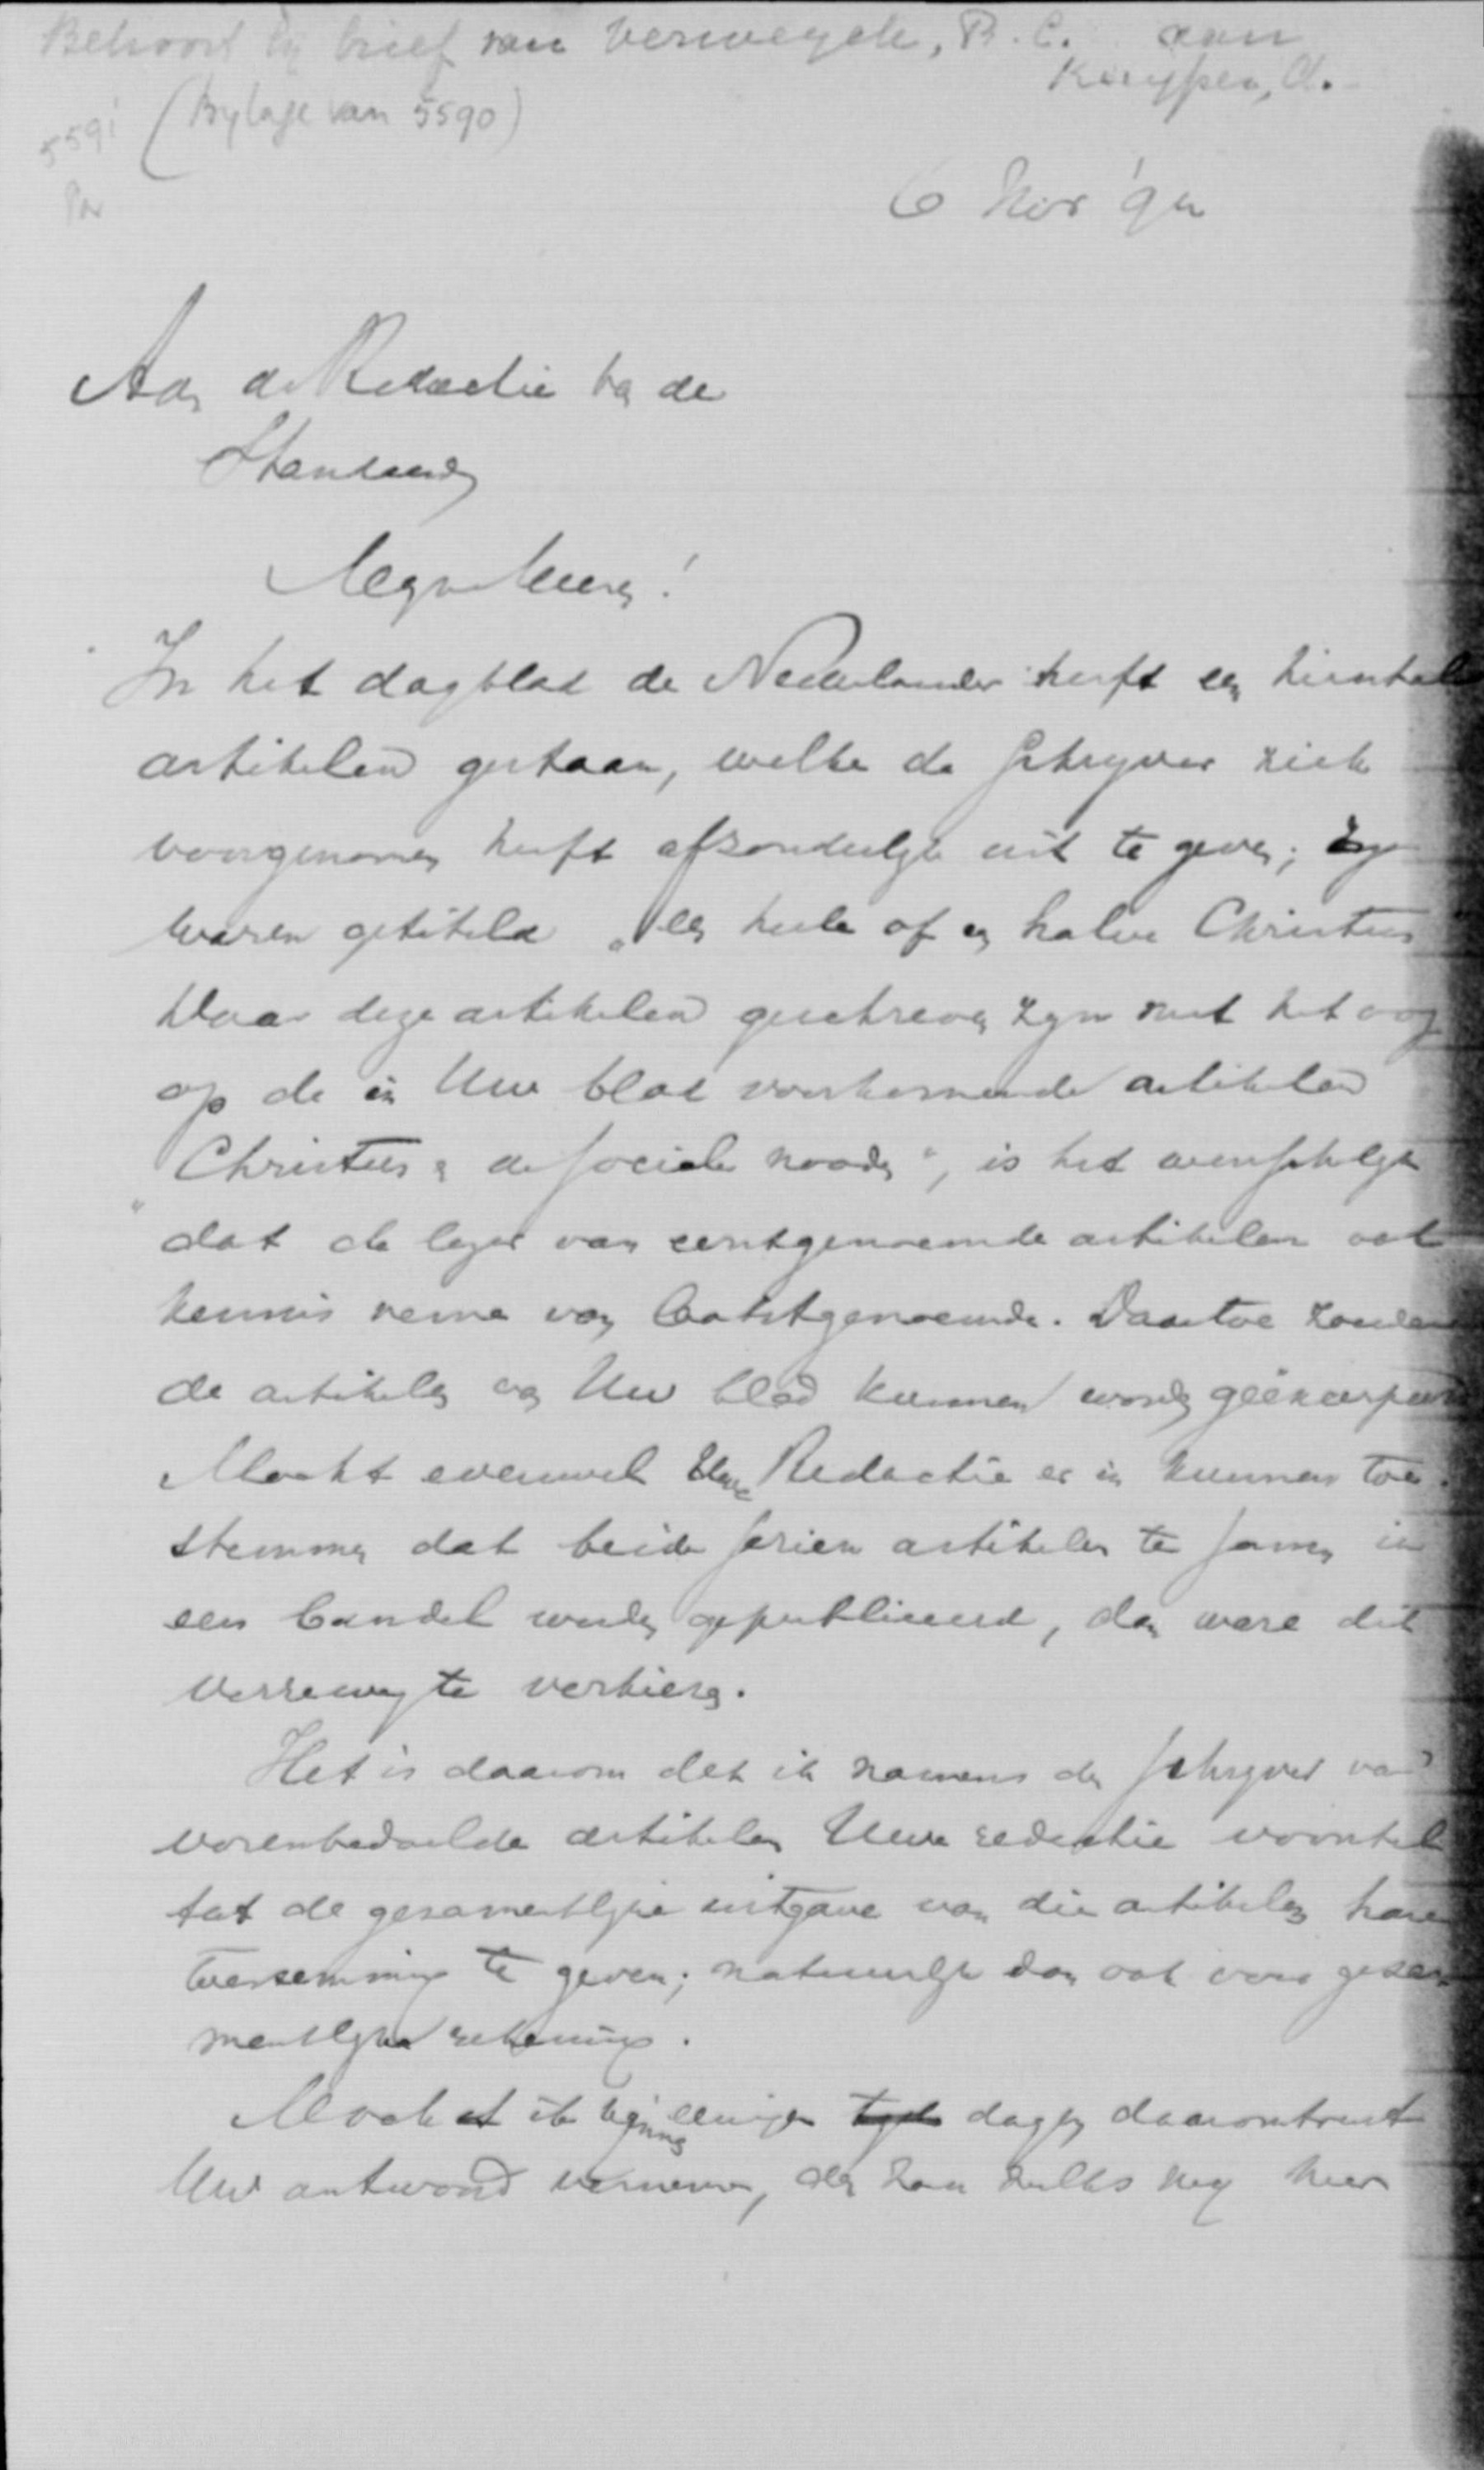 Behoort bij brief van Verweyck, B. C. aan
Kuyper, A.
5591 (Bylage van 5590)
6 Nov '94
Aan de Redactie van de
Standaard
Mijne Heeren!
In het dagblad de Nederlander heeft een tiental
artikelen gestaan, welke de schryver zich
voorgenomen heeft afzonderlyk uit te geven; zy
waren getiteld „een heele of een halve Christus
Waar deze artikelen geschreven zyn met het oog
op de in Uw blad voorkomende artikelen
„Christus en de sociale nooden", is het wenschelyk
dat de lezer van eerstgenoemde artikelen ook
kennis neme van laatstgenoemde. Daartoe zouden
de artikelen van Uw blad kunnen worden geëxcerpeerd
Mocht evenwel Uwe Redactie er in kunnen toe-
stemmen dat beide seriën artikelen te samen in
een bundel werden gepubliceerd, dan ware dit
verreweg te verkiezen.
Het is daarom dat ik namens den schryver van
vorenbedoelde artikelen Uwe redactie voorstel
tot de gezamentlyke uitgave van die artikelen hare
toestemming te geven; natuurlyk dan ook voor geza-
mentlyke rekening.
Mocht ik binnen eenige dagen daaromtrent
Uw antwoord vernemen, dan zou zulks my zeer